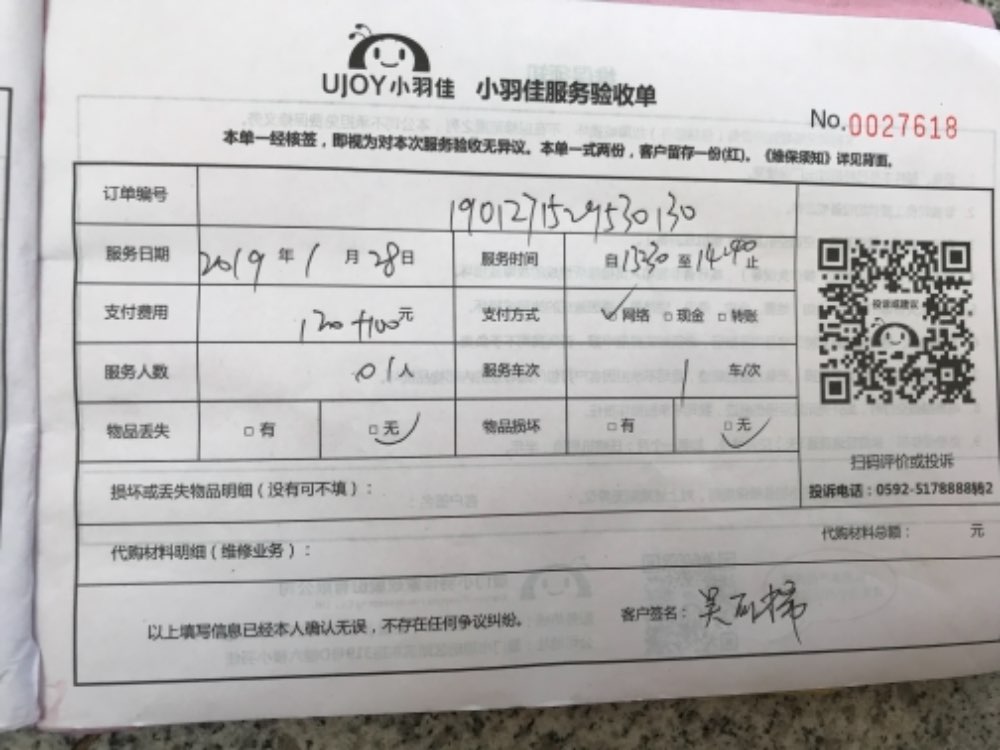 UJOY小羽佳 小羽佳服务验收单
No.0027618
本单一经核签，即视为对本次服务验收无异议。本单一式两份，客户留存一份(红)。《维保须知》详见背面。
订单编号 1901271529530130
服务日期 2019年1月28日 服务时间 自13:30至14:40止
支付费用 120+100元 支付方式 ☑网络 □现金 □转账
服务人数 01人 服务车次 1 车/次
物品丢失 □有 ☑无 物品损坏 □有 ☑无
投诉或建议
扫码评价或投诉
投诉电话：0592-5178888转2
损坏或丢失物品明细（没有可不填）：
代购材料明细（维修业务）： 代购材料总额： 元
以上填写信息已经本人确认无误，不存在任何争议纠纷。 客户签名：吴